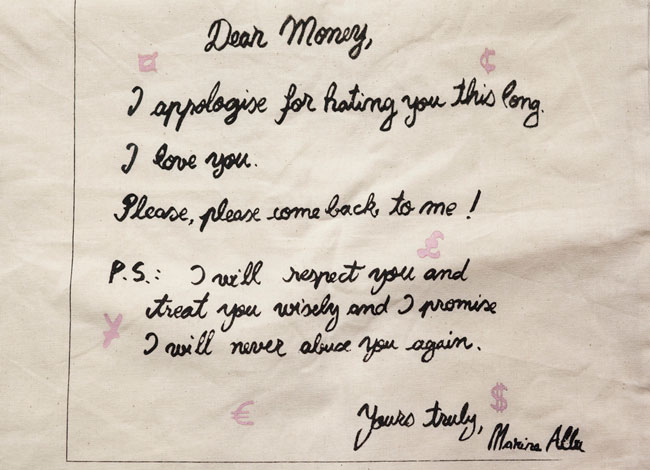 Dear Money,
¤ ¢
I appologise for hating you this long.
I love you.
Please, please come back to me!
£
P.S.: I will respect you and
treat you wisely and I promise
¥
I will never abuse you again.
€ $
Yours truly,
Marina Albu